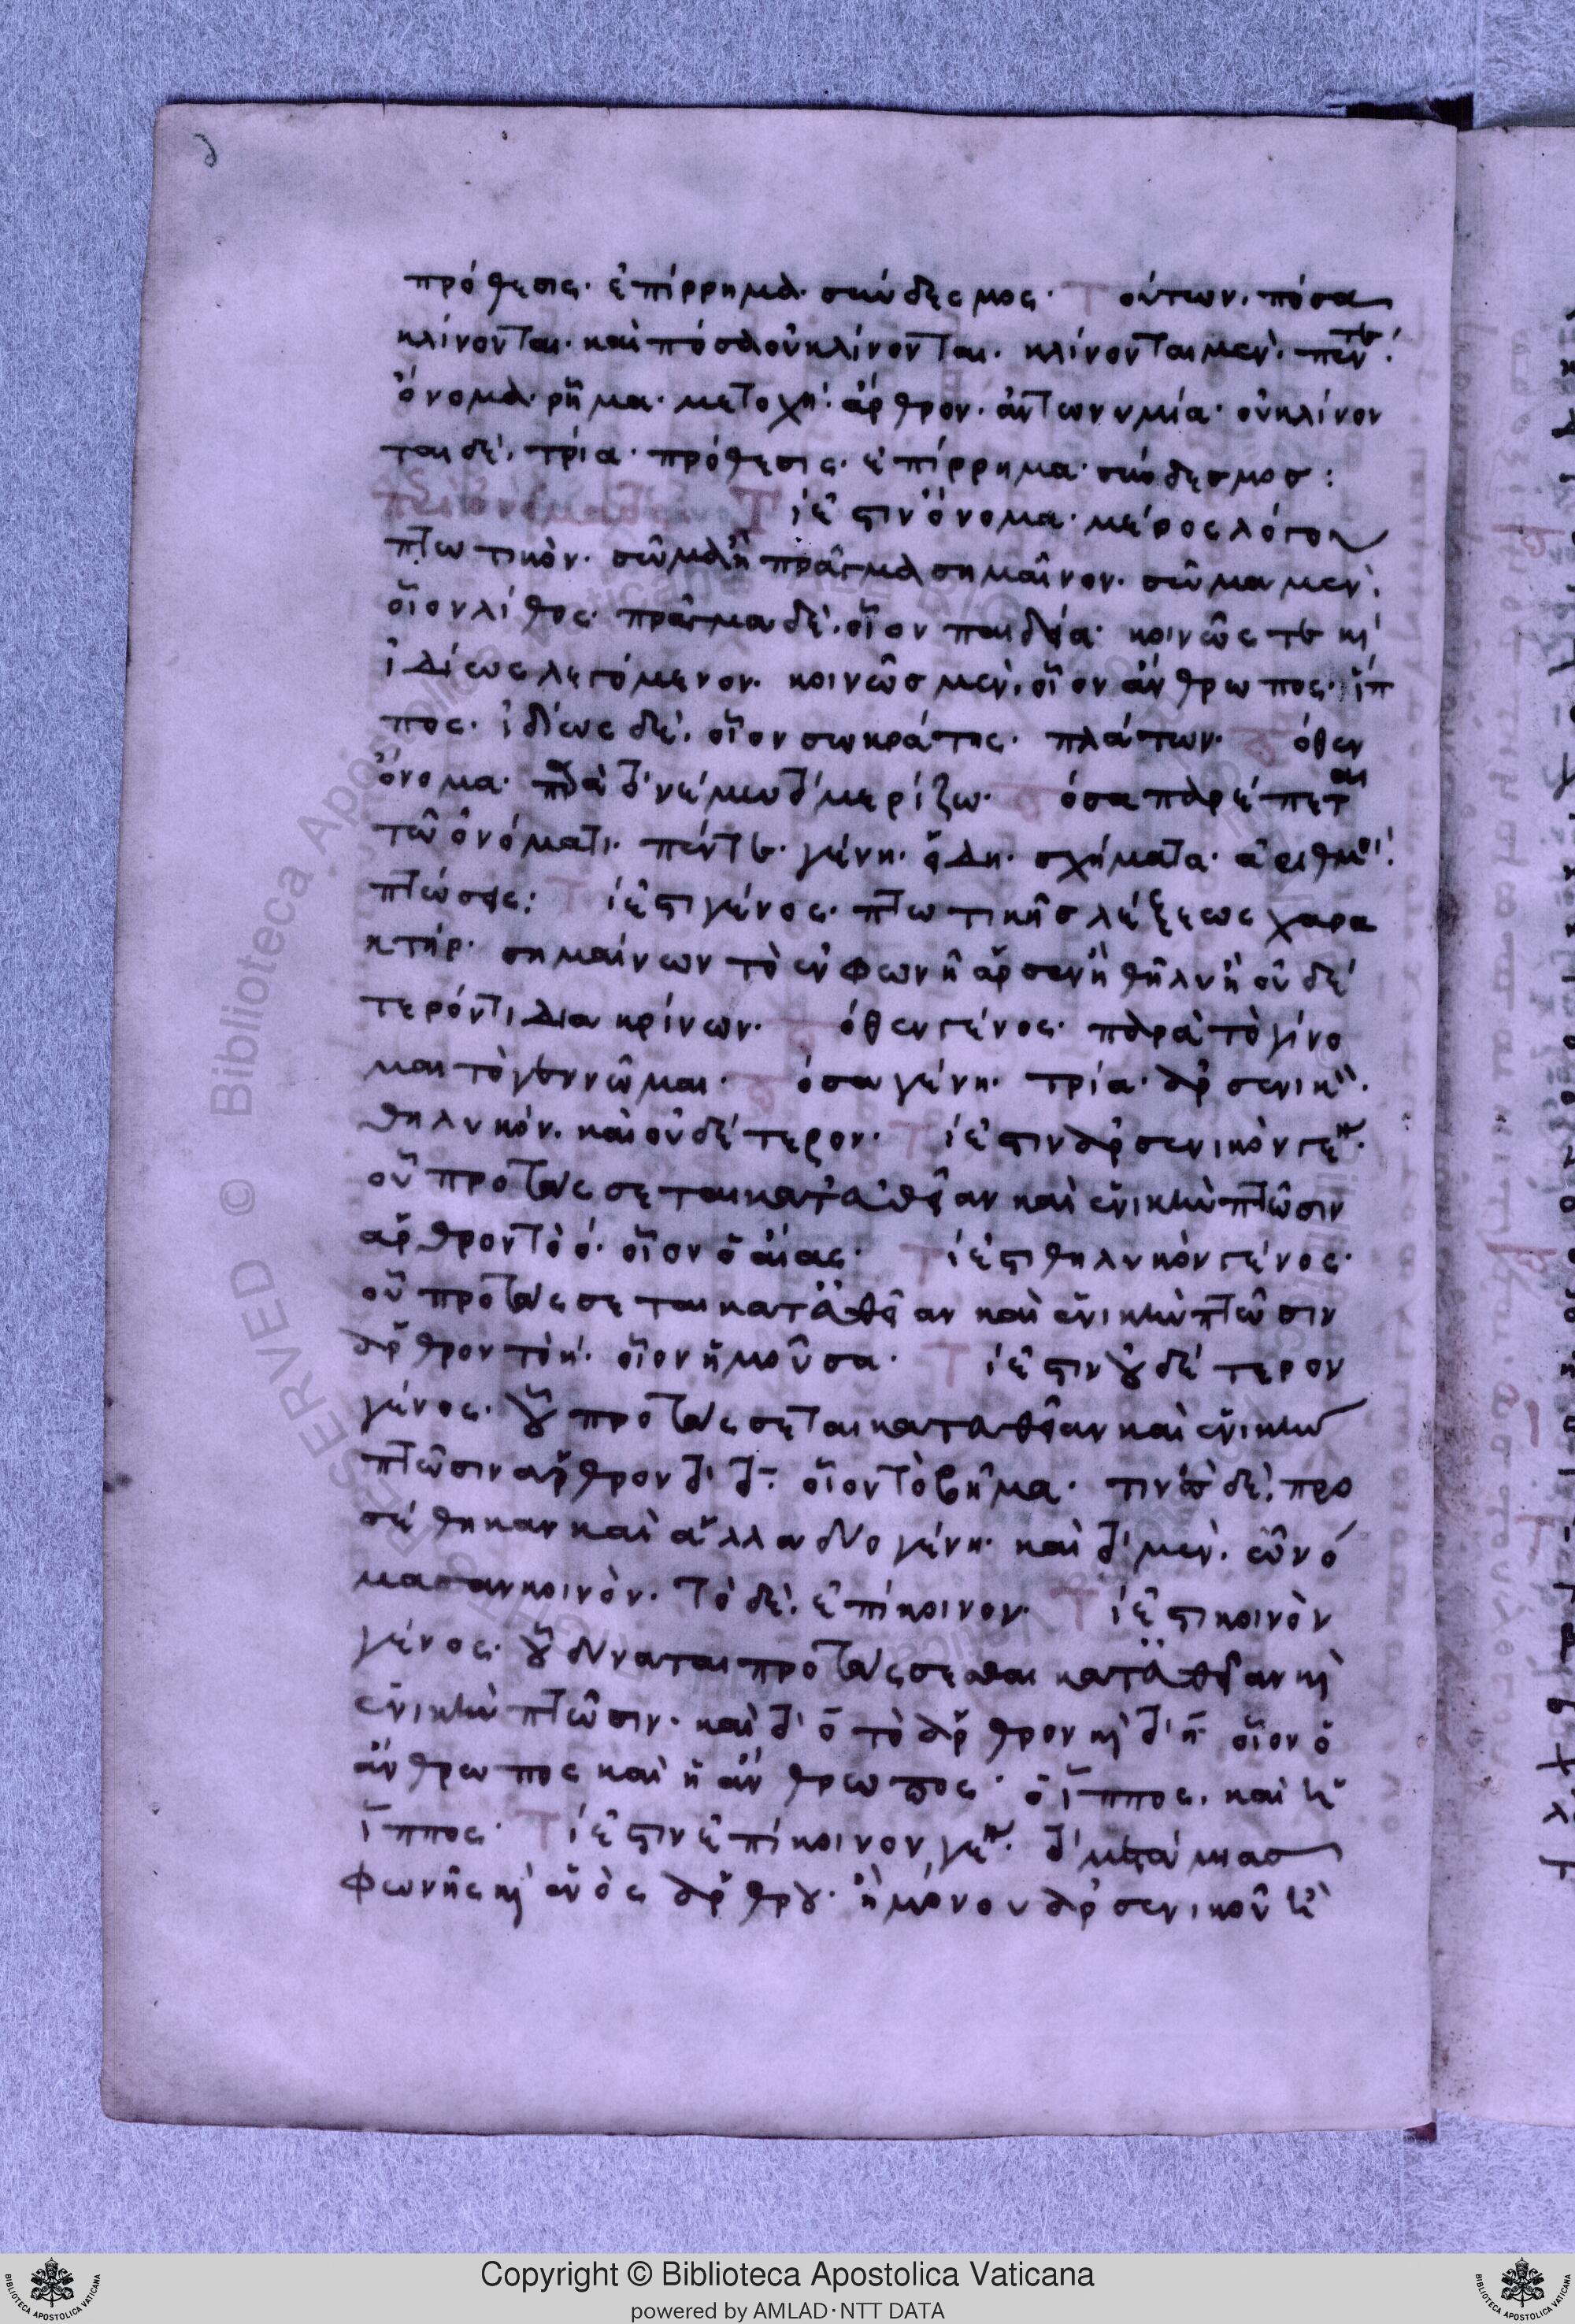 πρόθεσις· ἐπίρρημα· σύνδεσμος· Τούτων· πόσα
κλίνονται· καὶ πόσα οὐ κλίνονται· κλίνονται μὲν· πέντε·
ὄνομα· ῥῆμα· μετοχή· ἄρθρον· ἀντωνυμία· οὐ κλίνον
ται δὲ· τρία· πρόθεσις· ἐπίρρημα· σύνδεσμος:
Τί ἐστιν ὄνομα· μέρος λόγου
πτωτικὸν· σῶμα ἢ πρᾶγμα σημαῖνον· σῶμα μὲν·
οἷον λίθος· πρᾶγμα δὲ· οἷον παιδεία· κοινῶς τε καὶ
ἰδίως λεγόμενον· κοινῶς μὲν· οἷον ἄνθρωπος· ἵπ
πος· ἰδίως δὲ· οἷον σωκράτης· πλάτων· Πόθεν
ὄνομα· παρὰ τὸ νέμω τὸ μερίζω· Πόσα παρέπεται
τῶ ὀνόματι· πέντε· γένη· εἴδη· σχήματα· ἀριθμοί·
πτώσεις: Τί ἐστι γένος· πτωτικῆς λέξεως χαρα
κτήρ· σημαίνων τὸ ἐν φωνῆ ἄρσεν ἢ θῆλυ ἢ οὐδέ
τερόν τι διακρίνων· Πόθεν γένος· παρὰ τὸ γίνο
μαι τὸ γεννῶμαι· Πόσα γένη· τρία· ἀρσενικὸν·
θηλυκόν· καὶ οὐδέτερον· Τί ἐστιν ἀρσενικὸν γένος·
οὗ προτάσσεται κατ' εὐθεῖαν καὶ ἑνικὴν πτῶσιν
ἄρθρον τὸ ὁ· οἷον ὁ αἴας· Τί ἐστι θηλυκὸν γένος·
οὗ προτάσσεται κατ' εὐθεῖαν καὶ ἑνικὴν πτῶσιν
ἄρθρον τὸ ἡ· οἷον ἡ μοῦσα· Τί ἐστιν οὐδέτερον
γένος· οὗ προτάσσεται κατ' εὐθεῖαν καὶ ἑνικὴν
πτῶσιν ἄρθρον τὸ τὸ· οἷον τὸ βῆμα· τινὲς δὲ· προ
σέθηκαν καὶ ἄλλα δύο γένη· καὶ τὸ μὲν· ὠνό
μασαν κοινὸν· τὸ δὲ· ἐπίκοινον· Τί ἐστι κοινὸν
γένος· οὗ δύναται προτάσσεσθαι κατ' εὐθεῖαν καὶ
ἑνικὴν πτῶσιν· καὶ τὸ ὁ τὸ ἄρθρον καὶ τὸ ἡ· οἷον ὁ
ἄνθρωπος καὶ ἡ ἄνθρωπος· ὁ ἵππος· καὶ ἡ
ἵππος· Τί ἐστιν ἐπίκοινον γένος· τὸ μετὰ μιᾶς
φωνῆς καὶ ἑνὸς ἄρθρου· ἢ μόνου ἀρσενικοῦ ἢ
Copyright © Biblioteca Apostolica Vaticana
powered by AMLAD·NTT DATA